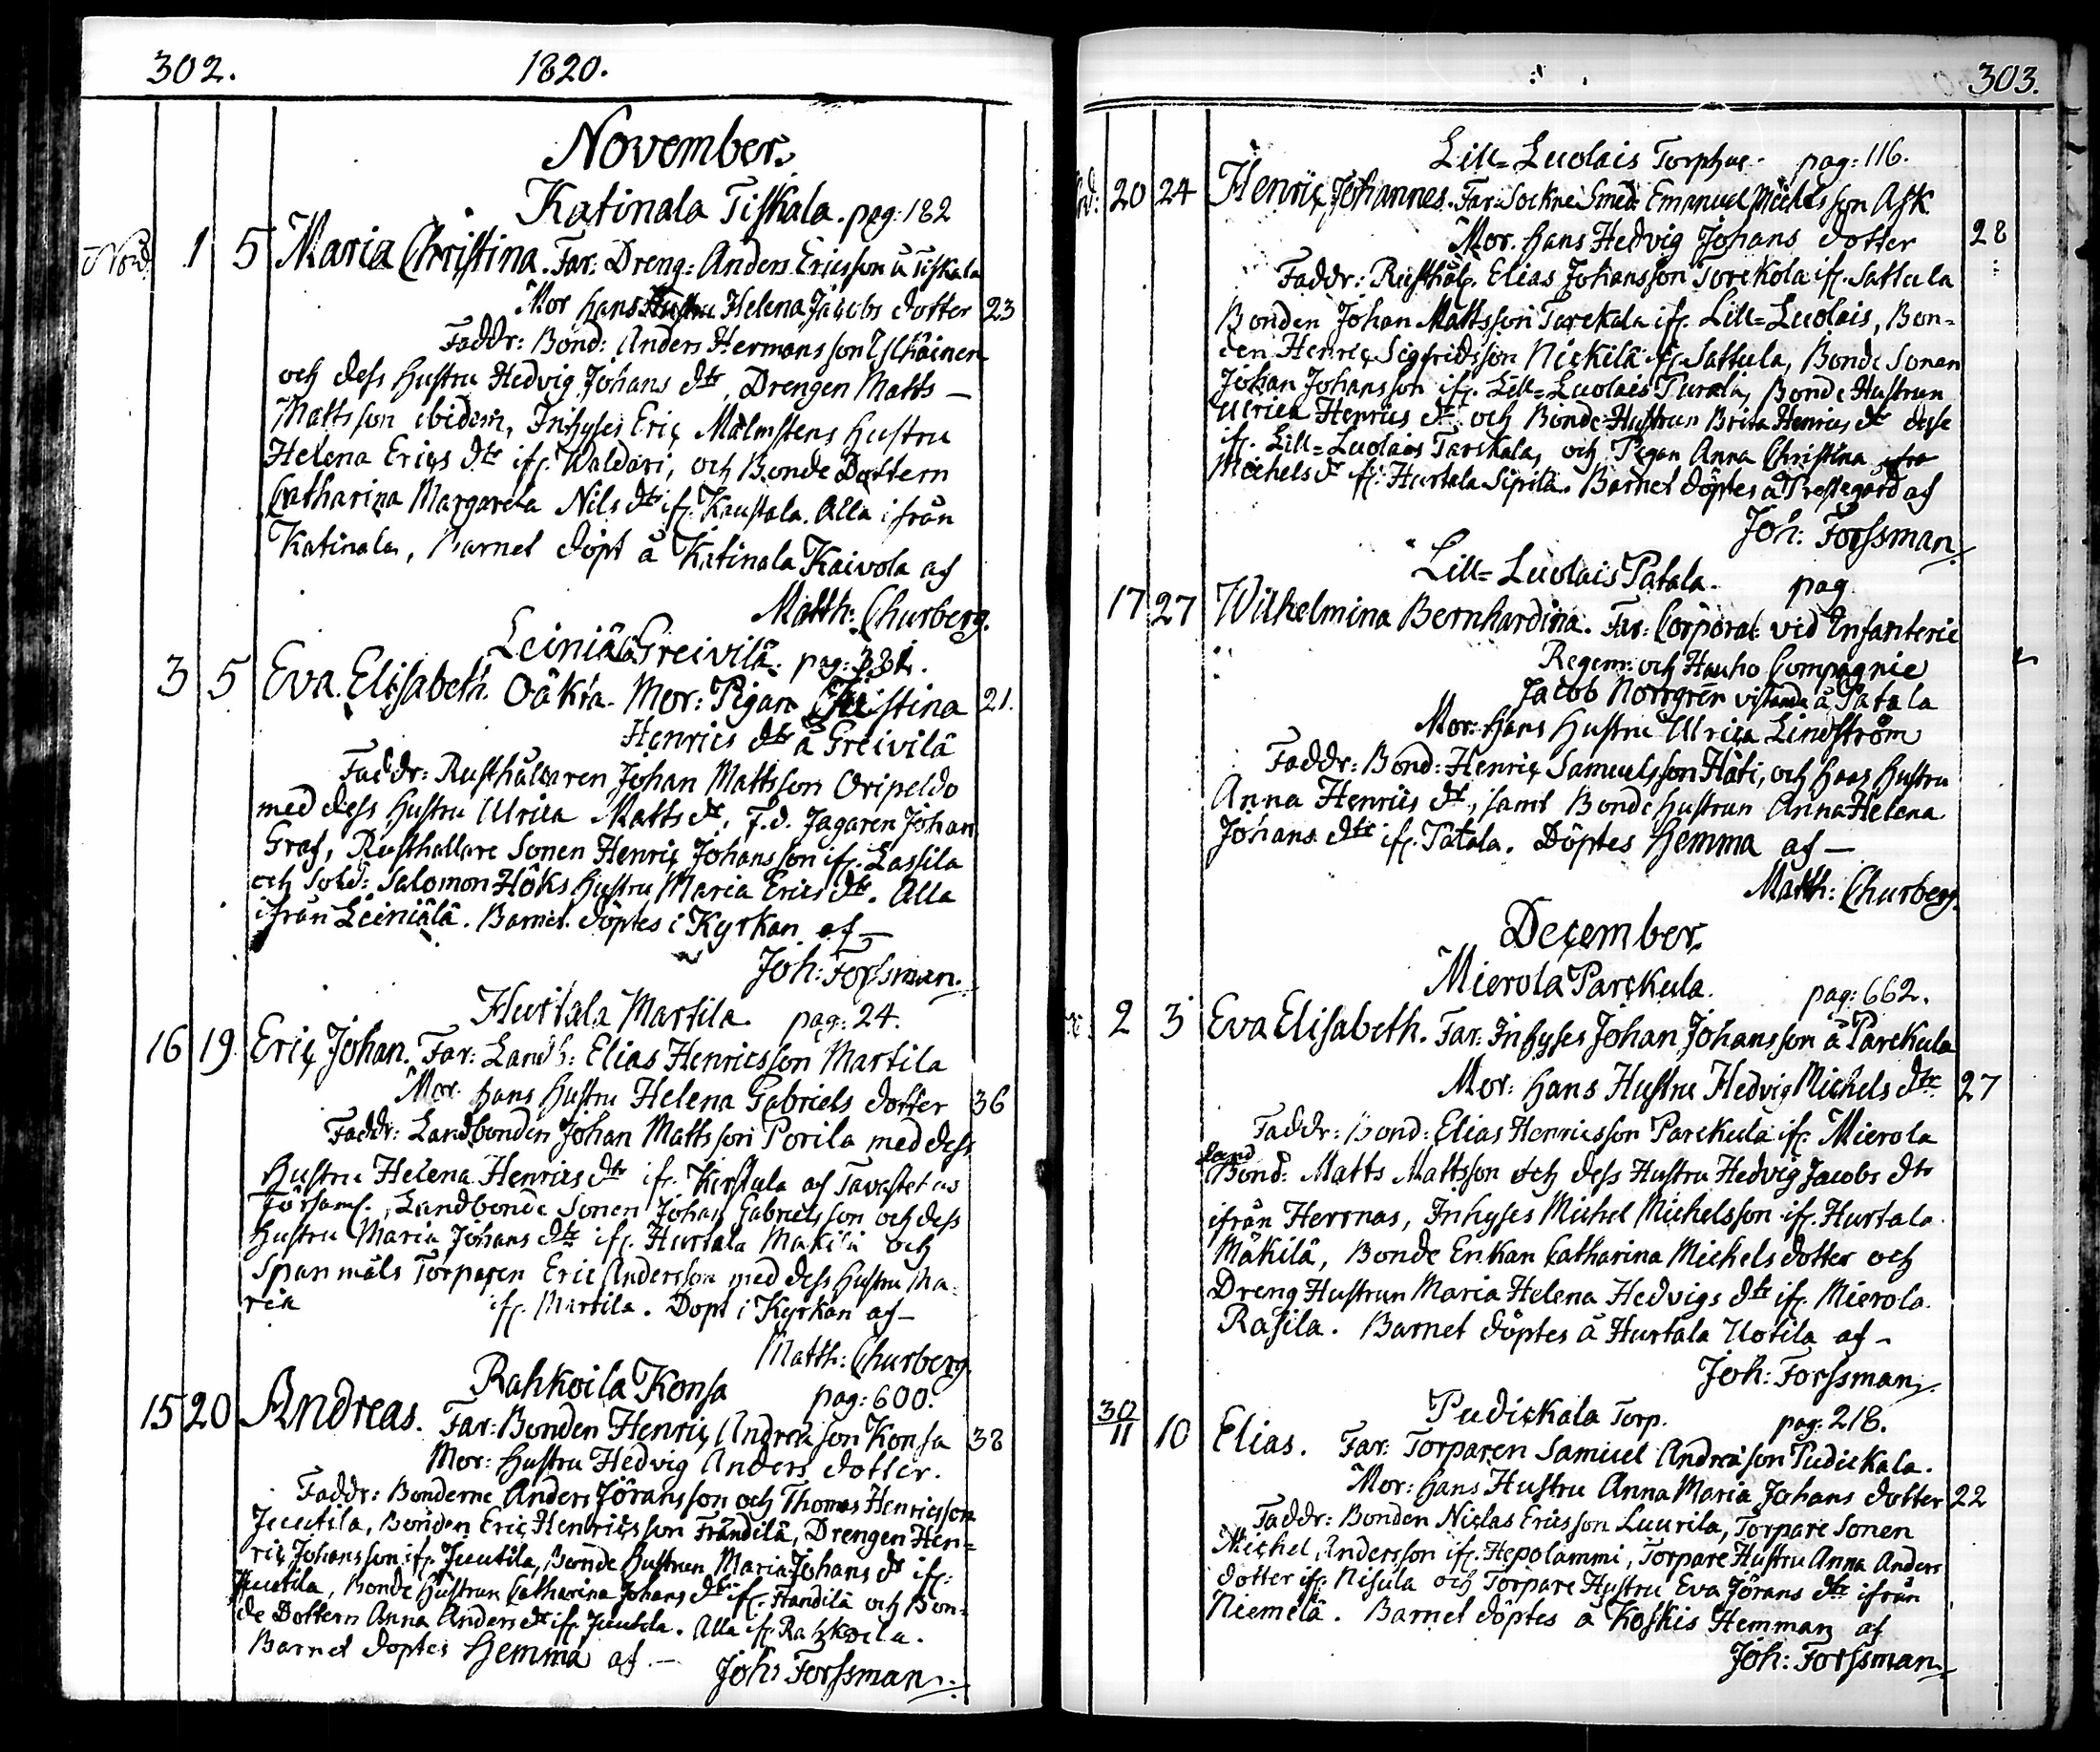 302. 1820.
November.
Katinala Tiskala. pag: 182
1 5 Maria Christina. Far: Dreng: Anders Ericsson å Tiskala
Mor hans Hustru Helena Jacobs dotter 23
Faddr: Bond: Anders Hermansson
och dess Hustru Hedvig Johans dtr, Drengen Matts –
Mattsson ibidem, Inhyses Eric Malmstens Hustru
Helena Erics dtr ifr. Waldari, och Bonde Dottern
Catharina Margareta Nils dtr ifr. Kaustala. Alla ifrån
Katinala, Barnet döpt å Katinala Kaivola af
Matth: Churberg.
Leiniälä Greivilä. pag: 331.
3 5 Eva Elisabeth. Oäkta. Mor: Pigan Christina 21.
Henrics dtr å Greivilä
Faddr: Rusthållaren Johan Mattsson Oripeldo
med dess Hustru Ulrica Matts dr, F.d. Jagaren Johan
Graf, Rusthållare Sonen Henric Johansson ifr. Lassila
och Sold: Salomon Höks Hustru Maria Erics dtr. Alla
ifrån Leiniälä. Barnet döptes i Kyrkan af –
Joh: Forssman.
Hurtala Martila. pag: 24.
16 19 Eric Johan. Far: Landb: Elias Henricsson Martila
Mor hans Hustru Helena Gabriels dotter 36
Faddr: Landbonden Johan Mattsson Porila med dess
Hustru Helena Henrics dtr ifr. Kirstula af Tavastehus
Församl., Landbonde Sonen Johan Gabrielsson och dess
Hustru Maria Johans dtr ifr. Hurtala Mäkilä och
Spanmåls Torparen Eric Andersson med dess Hustru Ma-
ria ifr. Martila. Döpt i Kyrkan af –
Matth: Churberg.
Rahkoila Konsa pag: 600.
15 20 Andreas. Far: Bonden Henric Andreason Konsa 38
Mor: Hustru Hedvig Anders dotter.
Faddr: Bönderne Anders Jöransson och Thomas Henricsson
Juutila, Bonden Eric Henricsson Frändilä, Drengen Hen-
ric Johansson ifr. Juutila, Bonde Hustrun Maria Johans dr ifr:
Juutila, Bonde Hustrun Catharina Johans dtr ifr. Handilä och Bon-
de Dottern Anna Anders dr ifr. Juutila. Alla ifr. Rahkoila.
Barnet döptes Hemma af. –
Joh: Forssman.
303.
Lill=Luolais Torphus. pag: 116.
20 24 Henric Johannes. Far: Sockne Smed Emanuel Michelsson Ask
Mor. hans Hedvig Johans dotter 28
Faddr: Rusthål. Elias Johansson Torckola ifr. Sattula
Bonden Johan Mattsson Tarckala ifr. Lill=Luolais, Bon-
den Henric Sigfridsson Nickilä ifr. Sattula, Bonde Sonen
Johan Johansson ifr. Lill=Luolais Purala, Bonde Hustrun
Ulrica Henrics dr, och Bonde Hustrun Brita Henrics dr desse
ifr. Lill=Luolais Tarskala, och Pigan Anna Christina
Michels dr ifr. Hurtala Sipilä. Barnet döptes å Prestegård af
Joh: Forssman.
Lill=Luolais Patala. pag
17 27 Wilhelmina Bernhardina. Far: Corporal vid Infanterie
Regem: och Hauho Compagnie
Jacob Norrgren vistande å Patala
Mor: Hans Hustru Ulrica Lindström
Faddr: Bond: Henric Samuelsson Häti, och Hans Hustru
Anna Henrics dr, samt Bonde hustrun Anna Helena
Johans dtr ifr. Patala. Döptes Hemma af –
Matth: Churberg.
December.
Mierola Parckula. pag: 662.
2 3 Eva Elisabeth. Far: Inhyses Johan Johansson å Parckula
Mor: Hans Hustru Hedvig Michels dtr 27
Faddr: Bond: Elias Henricsson Parckula ifr. Mierola
Land
Bond: Matts Mattsson och dess Hustru Hedvig Jacobs dtr
ifrån Herrnas, Inhyses Michel Michelsson ifr. Hurtala
Mäkilä, Bonde Enkan Catharina Michels dotter och
Dreng Hustrun Maria Helena Hedvigs dtr ifr. Mierola
Rasila. Barnet döptes å Hurtala Uotila af –
Joh: Forssman.
Pudickala Torp. pag: 218.
30/11 10 Elias. Far: Torparen Samuel Andreason Pudickala.
Mor: Hans Hustru Anna Maria Johans dotter 22
Faddr: Bonden Niclas Ericsson Luurila, Torpare Sonen
Michel Andersson ifr. Hepolammi, Torpare Hustru Anna Anders
dotter ifr. Nisula och Torpare Hustru Eva Jörans dtr ifrån
Niemelä. Barnet döptes å Koskis Hemman af
Joh: Forssman.